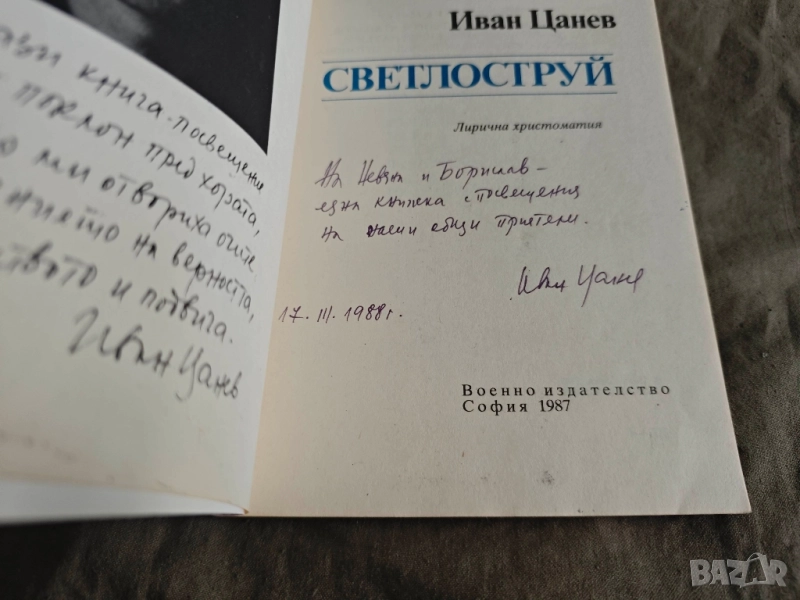 ази книга-посвещение
поклон пред хората,
о ми отвориха очите
на верността,
ството и подвига.
Иван Цанев
Иван Цанев
СВЕТЛОСТРУЙ
Лирична христоматия
На Невяна и Борислав –
една книжка с посвещения
на наши общи приятели.
Иван Цанев
17. III. 1988 г.
Военно издателство
София 1987
BAZAR